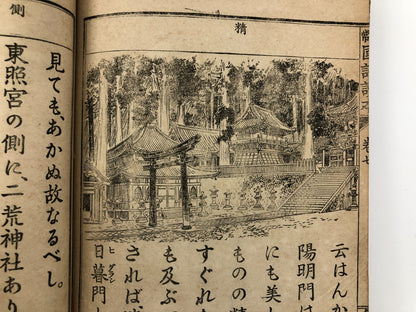 卷七
精
云はんか
陽明門は
にも美し
ものの精
すぐれ
も及ぶ
されば
日暮門
見ても、あかぬ故なるべし。
側
東照宮の側に、二荒神社あり